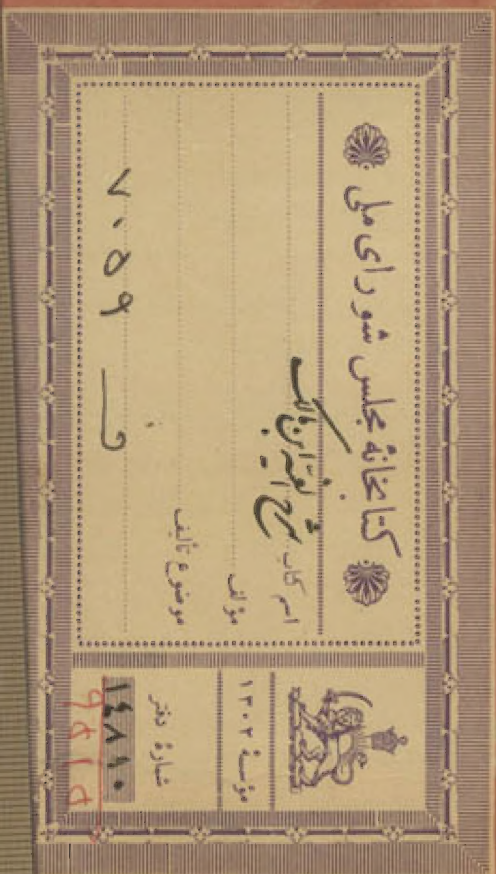 کتابخانهٔ مجلس شورای ملی
اسم کتاب شرح الفیه ابن مالک
مؤلف
موضوع تألیف
ف ۷۰۵۹
مؤسسهٔ ۱۳۰۲
شمارهٔ دفتر
۱۴۸۱۰
۹۵۱۵